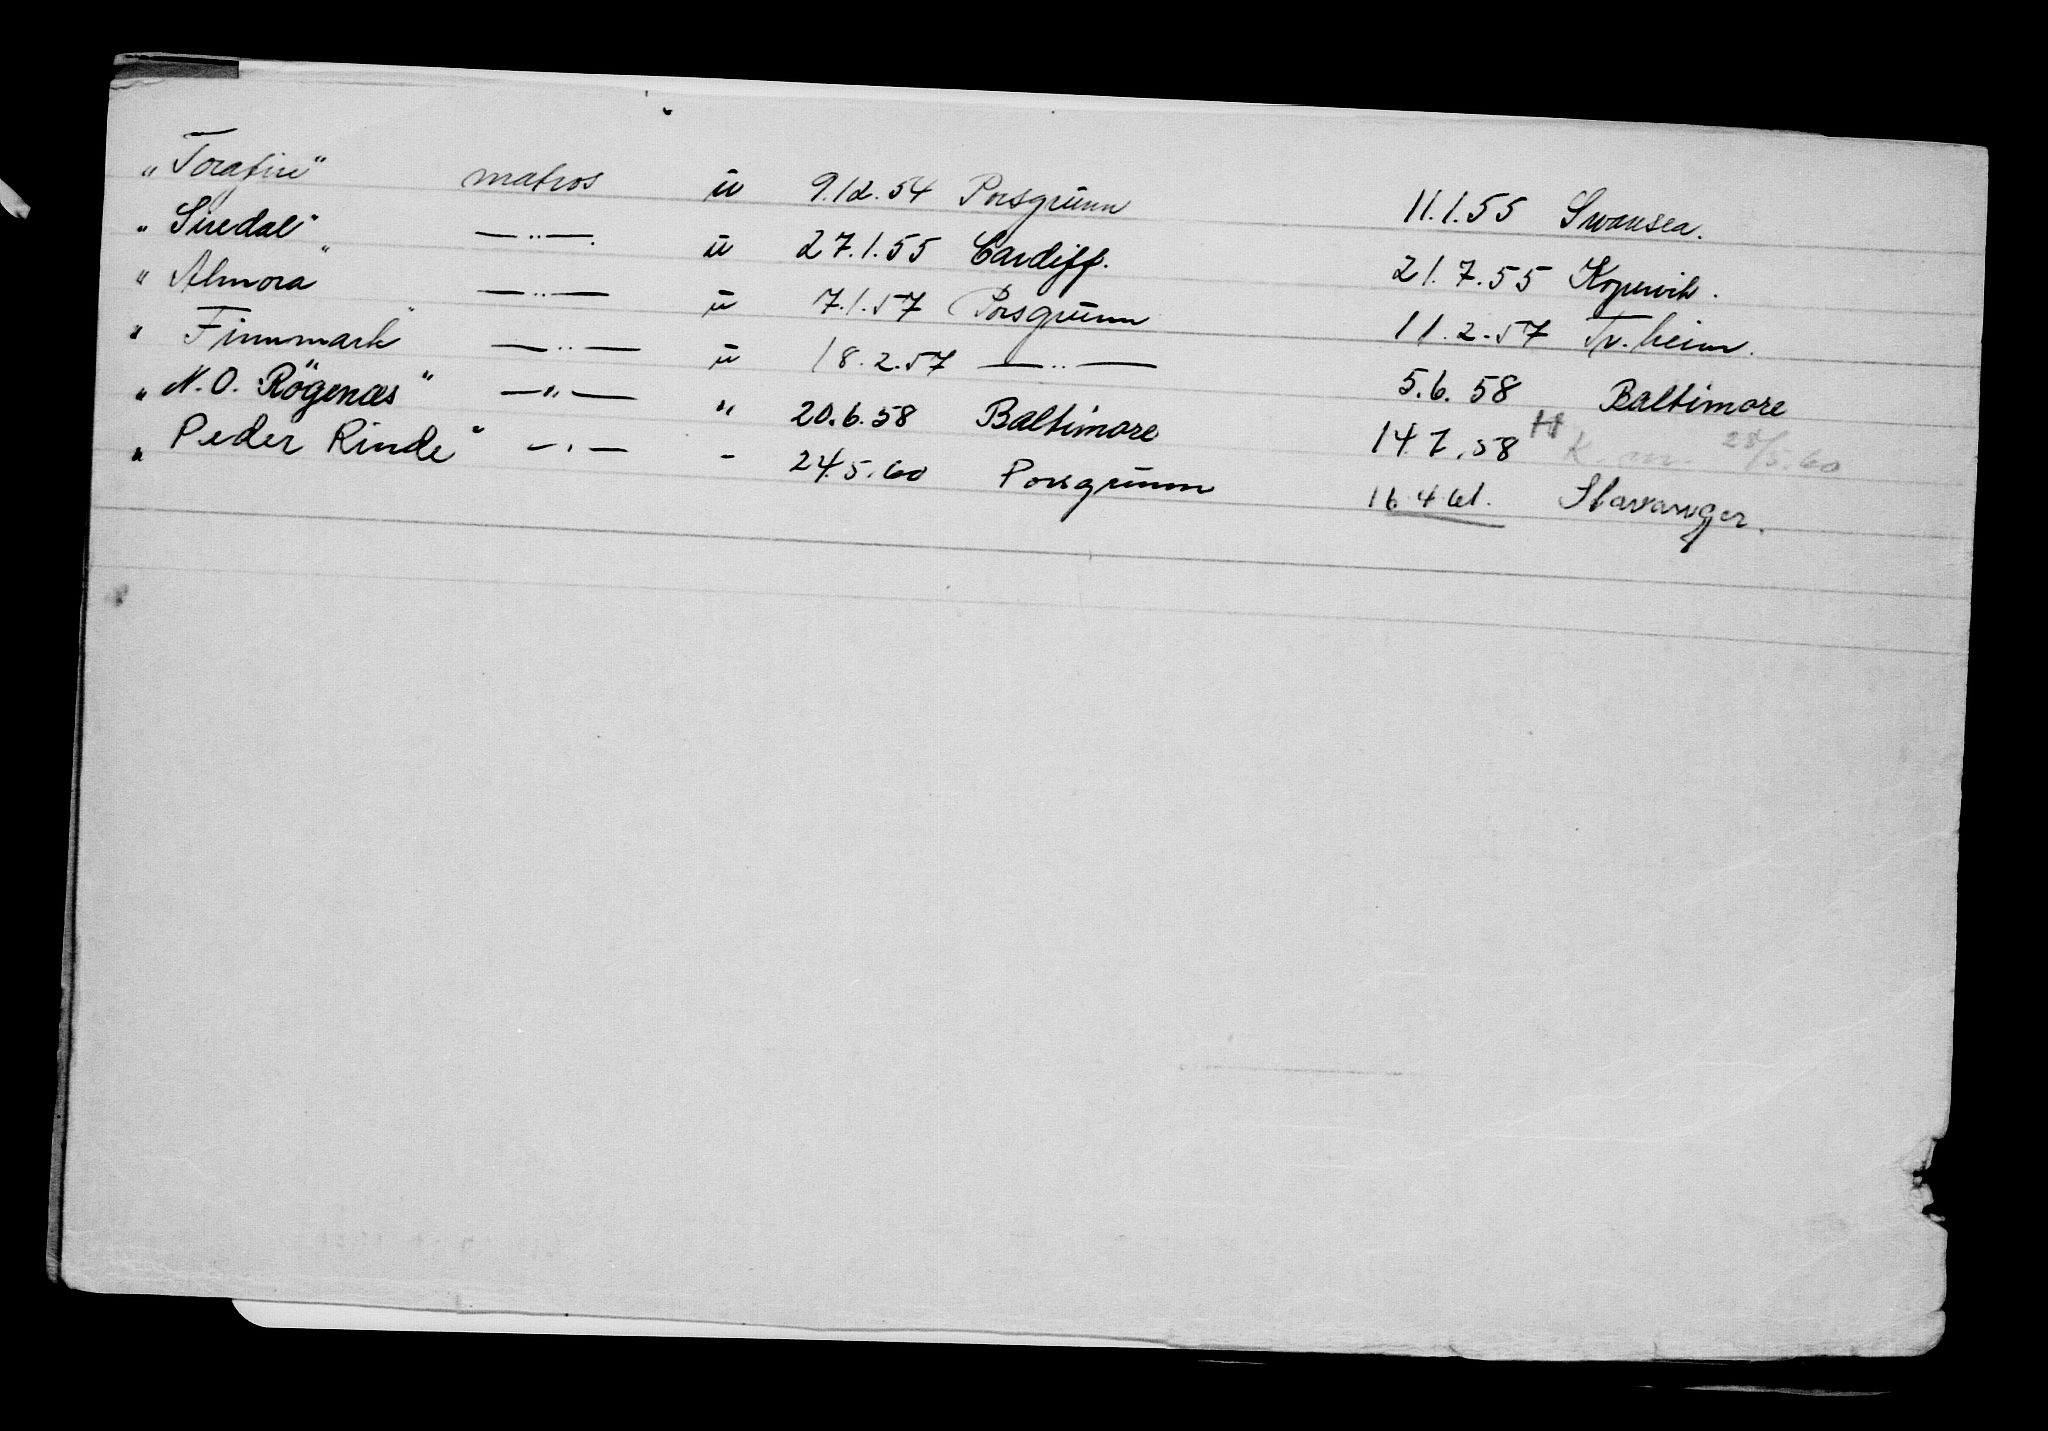 „Torafire“ matros ū 9.12.54 Porsgrūnn 11.1.55 Swansea.
„Siredal“ —„—. ū 27.1.55 Cardiff. 21.7.55 Kopervik.
„Almora“ —„— ū 7.1.57 Porsgrūnn 11.2.57 Tr.heim.
„Finnmark“ —„— ū 18.2.57 —„— 5.6.58 Baltimore
„N.O. Rögenæs“ —„— „ 20.6.58 Baltimore 14.7.58 H 28/5.60
„Peder Rinde“ —„— - 24.5.60 Porsgrunn 16.4.61. Stavanger.